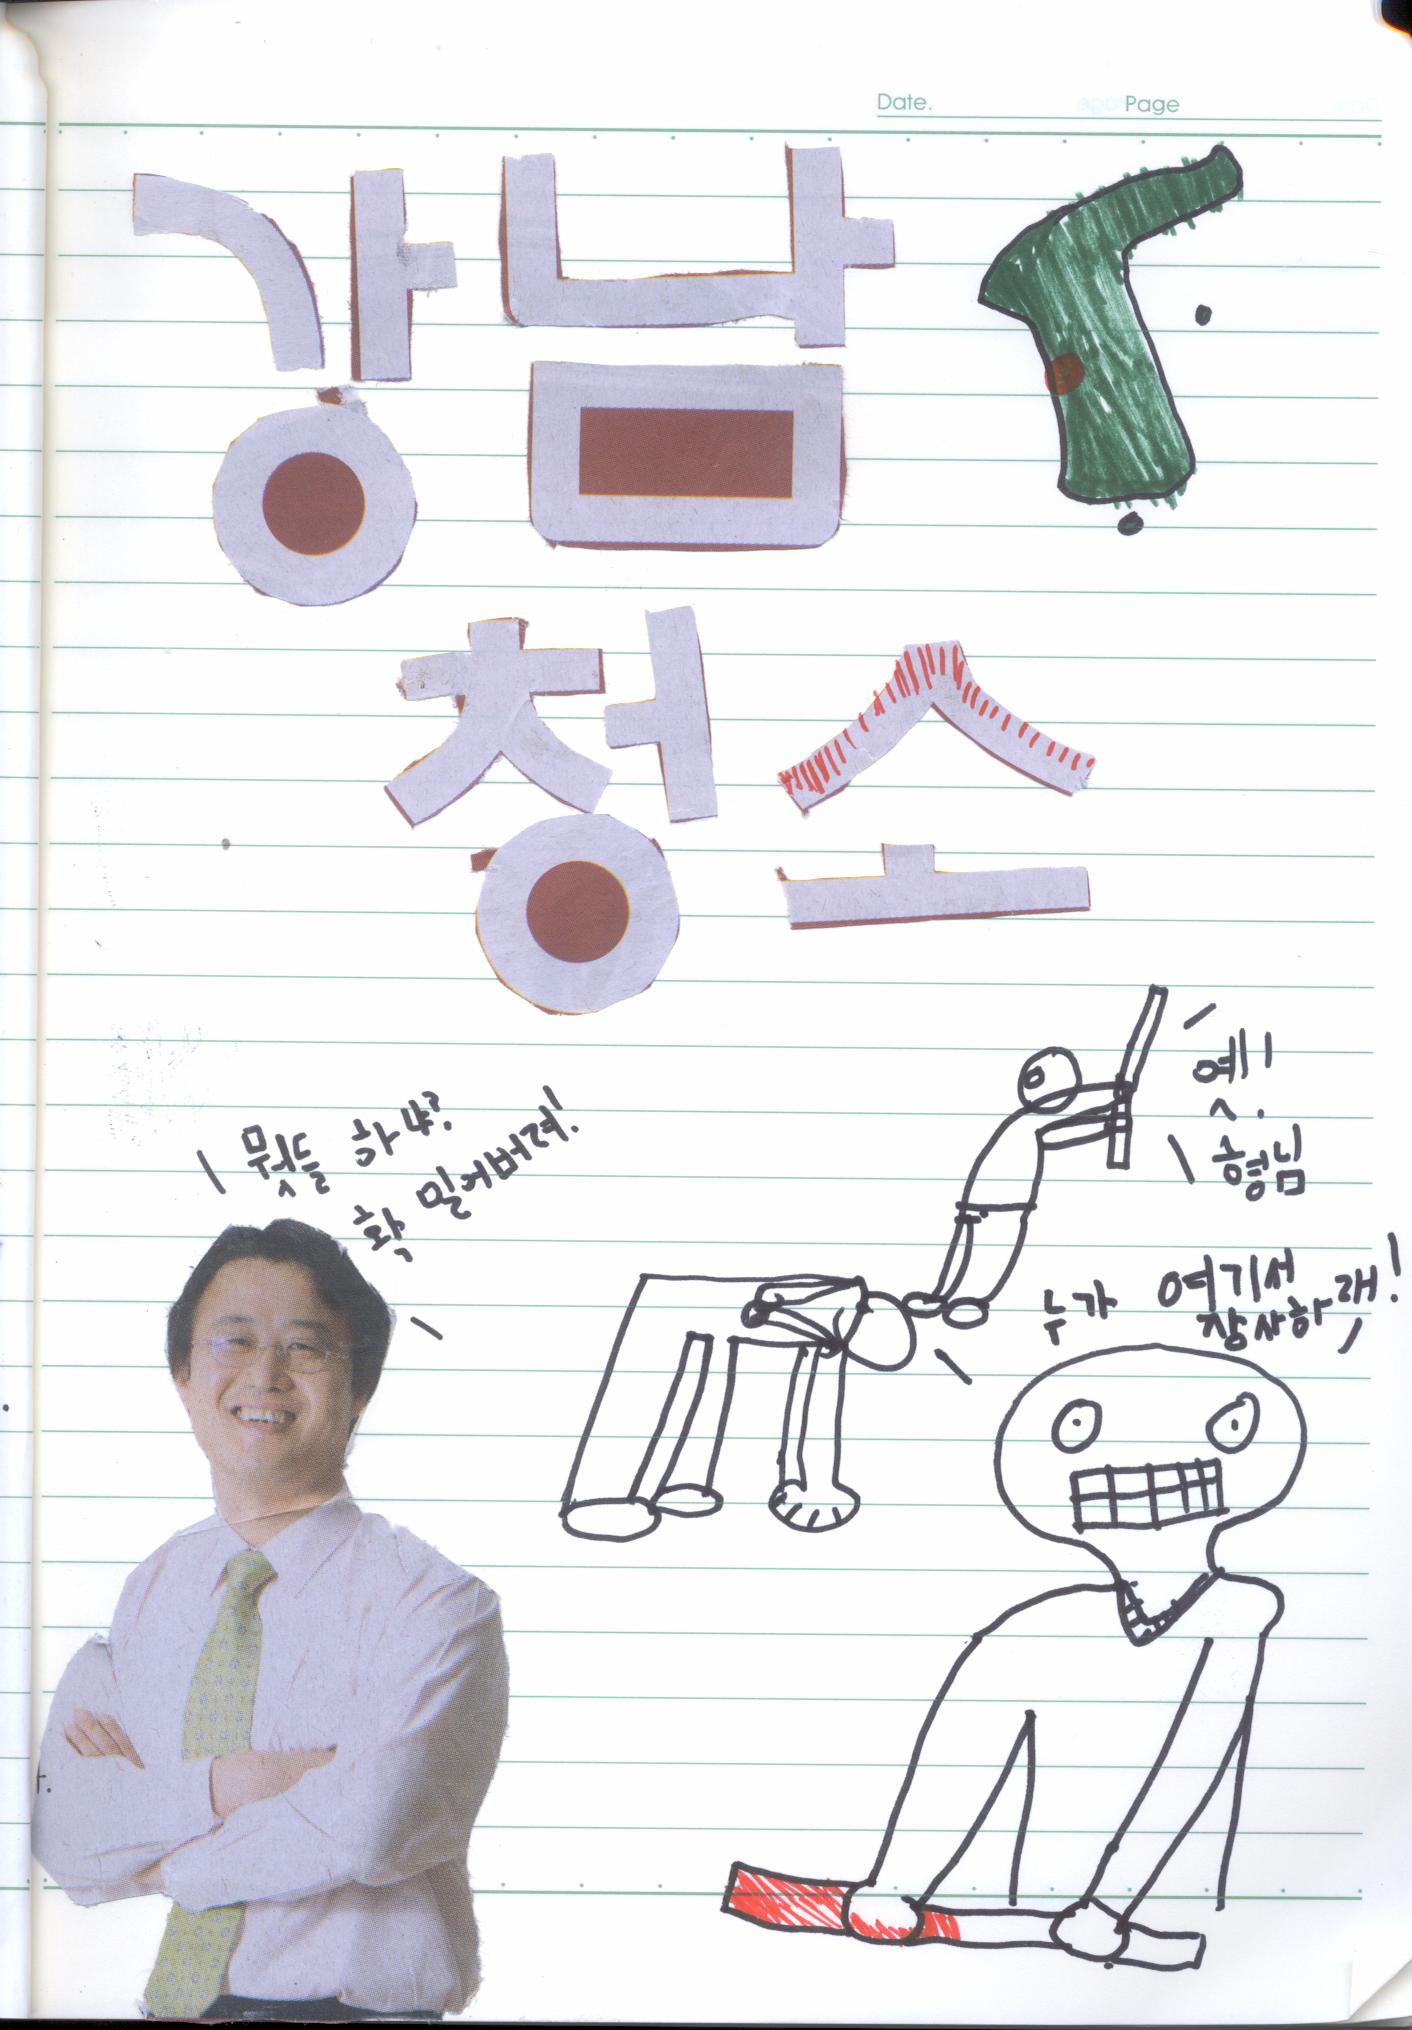 Date. Page
강남
청소
예!
형님
뭣들 하냐?
확 밀어버려!
누가 여기서
장사하래!